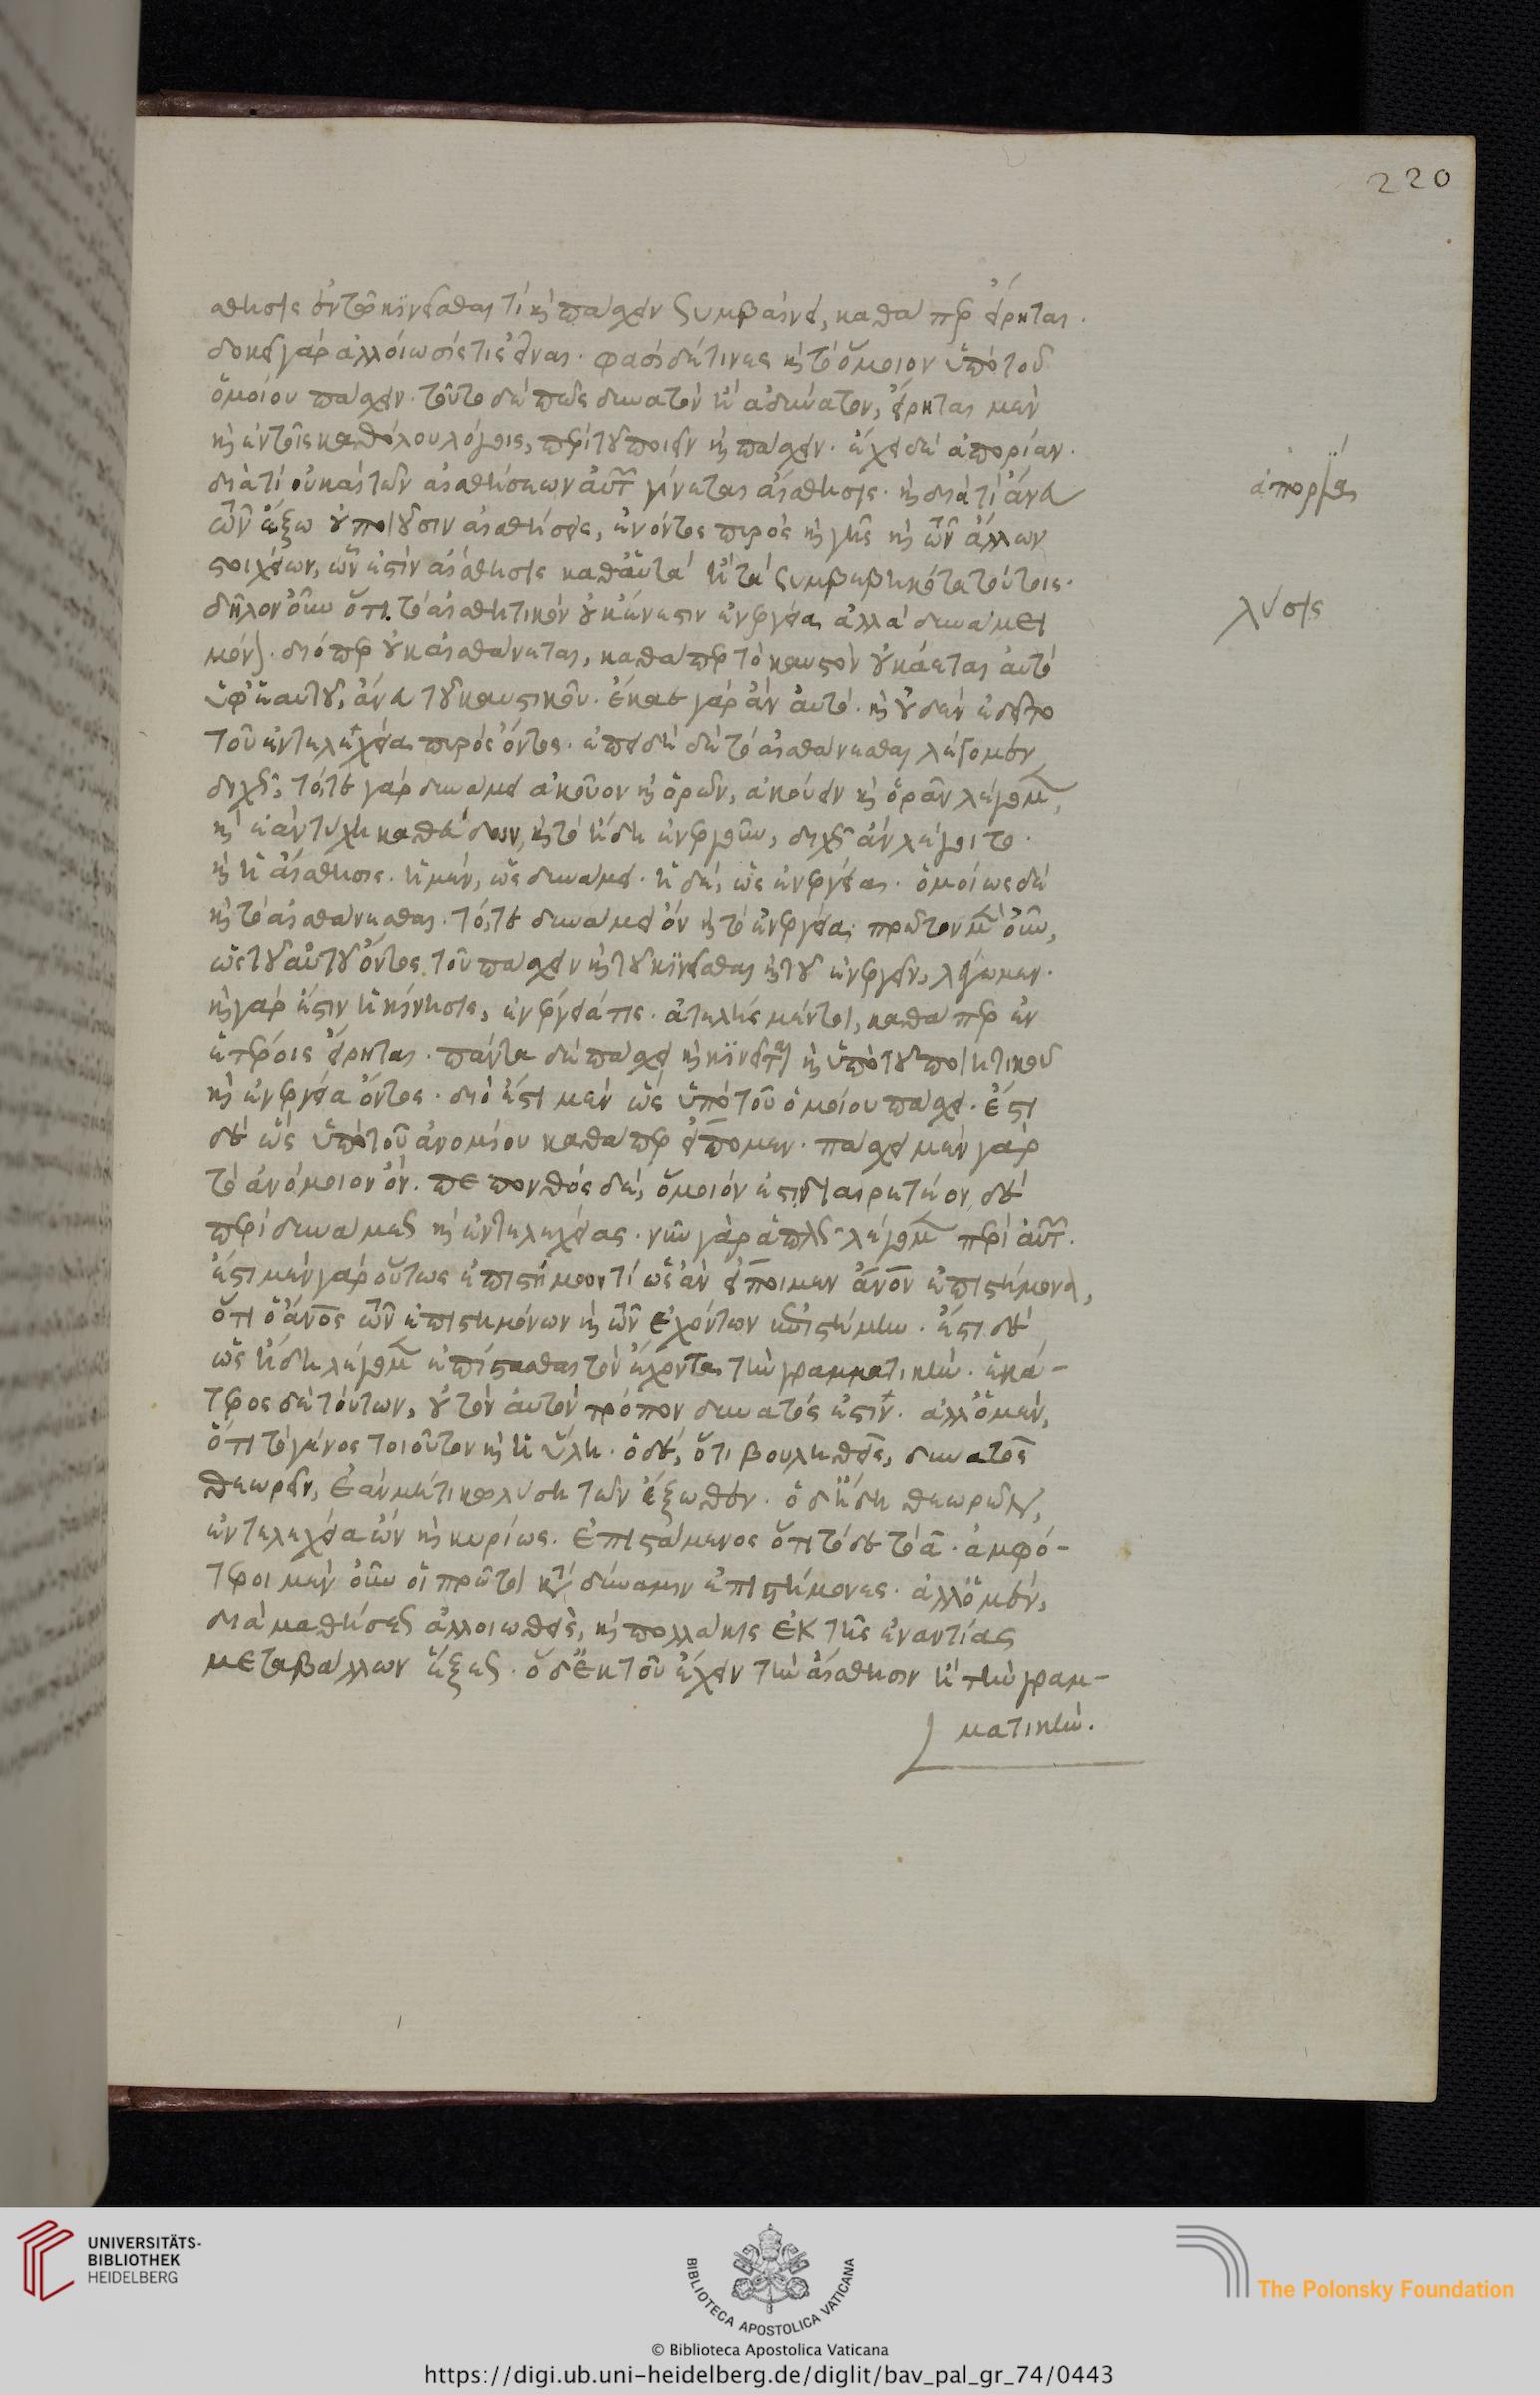 220
αἴσθησις ἐν τῷ κινεῖσθαι τί καὶ πάσχειν ξυμβαίνει, καθάπερ εἴρηται.
δοκεῖ γὰρ ἀλλοίωσίς τις εἶναι. φασὶ δέ τινες καὶ τὸ ὅμοιον ὑπὸ τοῦ
ὁμοίου πάσχειν. τοῦτο δὲ πῶς δυνατὸν ἢ ἀδύνατον, εἴρηται μὲν
καὶ ἐν τοῖς καθόλου λόγοις, περὶ τοῦ ποιεῖν καὶ πάσχειν. ἔχει δὲ ἀπορίαν.
διὰ τί οὐ καὶ τῶν αἰσθήσεων αὐτῶν γίνεται αἴσθησις. καὶ διὰ τί ἄνευ
τῶν ἔξω οὐ ποιοῦσιν αἰσθήσεις, ἐνόντος πυρὸς καὶ γῆς καὶ τῶν ἄλλων
στοιχείων, ὧν ἐστὶν αἴσθησις καθ' αὑτὰ ἢ τὰ ξυμβεβηκότα τούτοις.
δῆλον οὖν ὅτι τὸ αἰσθητικὸν οὐκ ἔνεστιν ἐνεργείᾳ ἀλλὰ δυνάμει
μόνον. διόπερ οὐκ αἰσθάνεται, καθάπερ τὸ καυστὸν οὐ καίεται αὐτὸ
ὑφ' ἑαυτοῦ, ἄνευ τοῦ καυστικοῦ. ἔκαιε γὰρ ἂν αὐτό. καὶ οὐδὲν ἐδεῖτο
τοῦ ἐντελεχείᾳ πυρὸς ὄντος. ἐπειδὴ δὲ τὸ αἰσθάνεσθαι λέγομεν
διχῶς, τό, τε γὰρ δυνάμει ἀκοῦον καὶ ὁρῶν, ἀκούειν καὶ ὁρᾶν λέγομεν,
καὶ ἐὰν τύχῃ καθεῦδον, καὶ τὸ ἤδη ἐνεργοῦν, διχῶς ἂν λέγοιτο.
καὶ ἡ αἴσθησις. ἡ μὲν, ὡς δυνάμει. ἡ δὲ, ὡς ἐνεργείᾳ. ὁμοίως δὲ
καὶ τὸ αἰσθάνεσθαι. τό, τε δυνάμει ὂν καὶ τὸ ἐνεργείᾳ. πρῶτον μὲν οὖν,
ὡς τοῦ αὐτοῦ ὄντος τοῦ πάσχειν καὶ τοῦ κινεῖσθαι καὶ τοῦ ἐνεργεῖν, λέγωμεν.
καὶ γὰρ ἔστιν ἡ κίνησις, ἐνέργειά τις. ἀτελὴς μέντοι, καθάπερ ἐν
ἑτέροις εἴρηται. πάντα δὲ πάσχει καὶ κινεῖται καὶ ὑπὸ τοῦ ποιητικοῦ
καὶ ἐνεργείᾳ ὄντος. διὸ ἔστι μὲν ὡς ὑπὸ τοῦ ὁμοίου πάσχει. ἔστι
δὲ ὡς ὑπὸ τοῦ ἀνομοίου καθάπερ εἴπομεν. πάσχει μὲν γὰρ
τὸ ἀνόμοιον ὄν. πεπονθὸς δὲ, ὅμοιόν ἐστι. διαιρετέον δὲ
περὶ δυνάμεως καὶ ἐντελεχείας. νῦν γὰρ ἁπλῶς λέγομεν περὶ αὐτῶν.
ἔστι μὲν γὰρ οὕτως ἐπιστήμον τί ὡς ἂν εἴποιμεν ἄνον ἐπιστήμονα,
ὅτι ὁ ἄνος τῶν ἐπιστημόνων καὶ τῶν ἐχόντων ἐπιστήμην. ἔστι δὲ
ὡς ἤδη λέγομεν ἐπίστασθαι τὸν ἔχοντα τὴν γραμματικήν. ἑκά-
τερος δὲ τούτων, οὐ τὸν αὐτὸν τρόπον δυνατός ἐστιν. ἀλλ' ὁ μὲν,
ὅτι τὸ γένος τοιοῦτον καὶ ἡ ὕλη. ὁ δὲ, ὅτι βουληθεὶς, δυνατὸς
θεωρεῖν, ἐὰν μή τι κωλύσῃ τῶν ἔξωθεν. ὁ δ' ἤδη θεωρῶν,
ἐντελεχείᾳ ὢν καὶ κυρίως. ἐπιστάμενος ὅτι τόδε τὸ ᾱ. ἀμφό-
τεροι μὲν οὖν οἱ πρῶτοι κατὰ δύναμιν ἐπιστήμονες. ἀλλ' ὁ μὲν,
διὰ μαθήσεως ἀλλοιωθεὶς, καὶ πολλάκις ἐκ τῆς ἐναντίας
μεταβάλλων ἕξεως. ὁ δ' ἐκ τοῦ ἔχειν τὴν αἴσθησιν ἢ τὴν γραμ-
ματικήν.
ἀπορία
λύσις
UNIVERSITÄTS-
BIBLIOTHEK
HEIDELBERG
BIBLIOTECA APOSTOLICA VATICANA
The Polonsky Foundation
© Biblioteca Apostolica Vaticana
https://digi.ub.uni-heidelberg.de/diglit/bav_pal_gr_74/0443